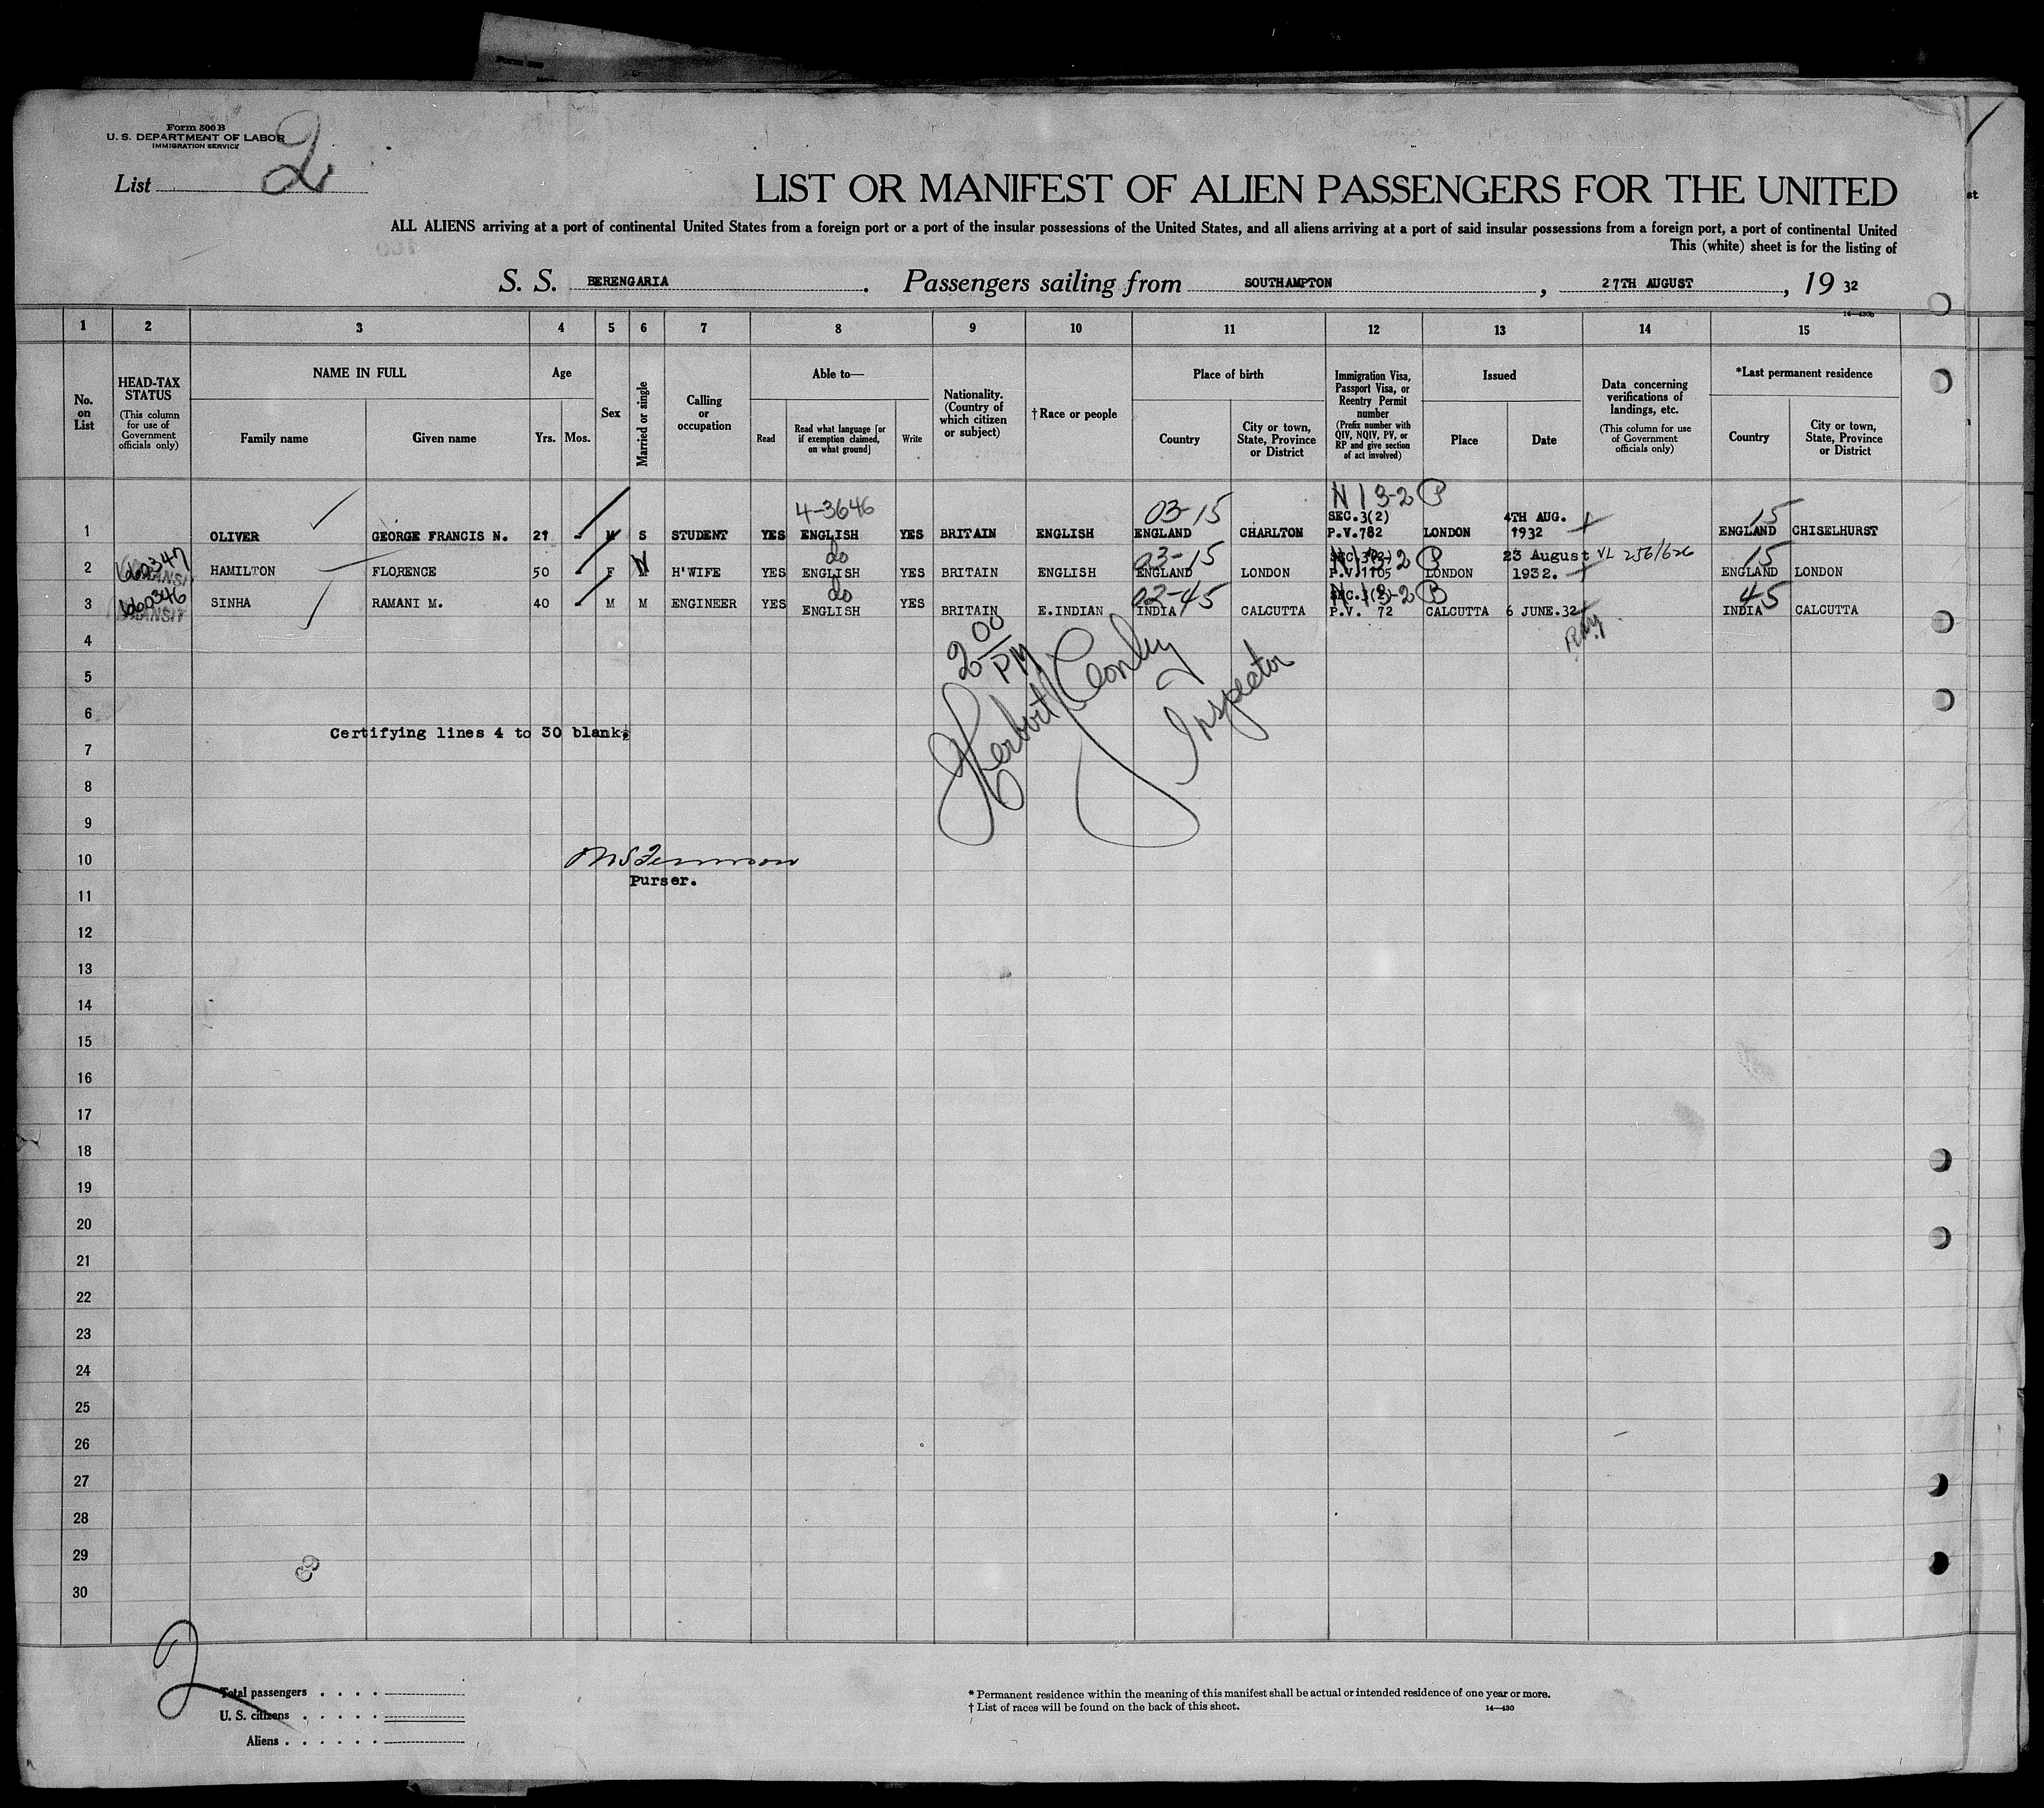 Form 500 B
U. S. DEPARTMENT OF LABOR
IMMIGRATION SERVICE
List 2
st
LIST OR MANIFEST OF ALIEN PASSENGERS FOR THE UNITED
ALL ALIENS arriving at a port of continental United States from a foreign port or a port of the insular possessions of the United States, and all aliens arriving at a port of said insular possessions from a foreign port, a port of continental United
This (white) sheet is for the listing of
S. S. BERENGARIA. Passengers sailing from SOUTHAMPTON, 27TH AUGUST, 19 32
14—430b
1 2 3 4 5 6 7 8 9 10 11 12 13 14 15
No. on List
HEAD-TAX STATUS (This column for use of Government officials only)
NAME IN FULL
Family name
Given name
Age
Yrs. Mos.
Sex
Married or single
Calling or occupation
Able to—
Read
Read what language [or if exemption claimed, on what ground]
Write
Nationality. (Country of which citizen or subject)
†Race or people
Place of birth
Country
City or town, State, Province or District
Immigration Visa, Passport Visa, or Reentry Permit number (Prefix number with QIV, NQIV, PV, or RP and give section of act involved)
Issued
Place
Date
Data concerning verifications of landings, etc. (This column for use of Government officials only)
*Last permanent residence
Country
City or town, State, Province or District
4-3646 03-15 N 13-2 P 15
1 OLIVER GEORGE FRANCIS N. 21 M S STUDENT YES ENGLISH YES BRITAIN ENGLISH ENGLAND CHARLTON SEC.3(2) P.V.782 LONDON 4TH AUG. 1932 ENGLAND CHISELHURST
660347 do 03-15 N 13-2 P VL 256/626 15
2 TRANSIT HAMILTON FLORENCE 50 F M H'WIFE YES ENGLISH YES BRITAIN ENGLISH ENGLAND LONDON SEC.3(2) P.V.1105 LONDON 23 August 1932. ENGLAND LONDON
660346 do 02-45 N 13-2 B 45
3 TRANSIT SINHA RAMANI M. 40 M M ENGINEER YES ENGLISH YES BRITAIN E.INDIAN INDIA CALCUTTA SEC.3(2) P.V. 72 CALCUTTA 6 JUNE.32 INDIA CALCUTTA
4
2 00 PM
5
6
Herbert Conley
Inspector
Certifying lines 4 to 30 blank.
7
8
9
10
11
Purser.
12
13
14
15
16
17
18
19
20
21
22
23
24
25
26
27
28
29
30
2
Total passengers
U. S. citizens
Aliens
* Permanent residence within the meaning of this manifest shall be actual or intended residence of one year or more.
† List of races will be found on the back of this sheet.
14—430